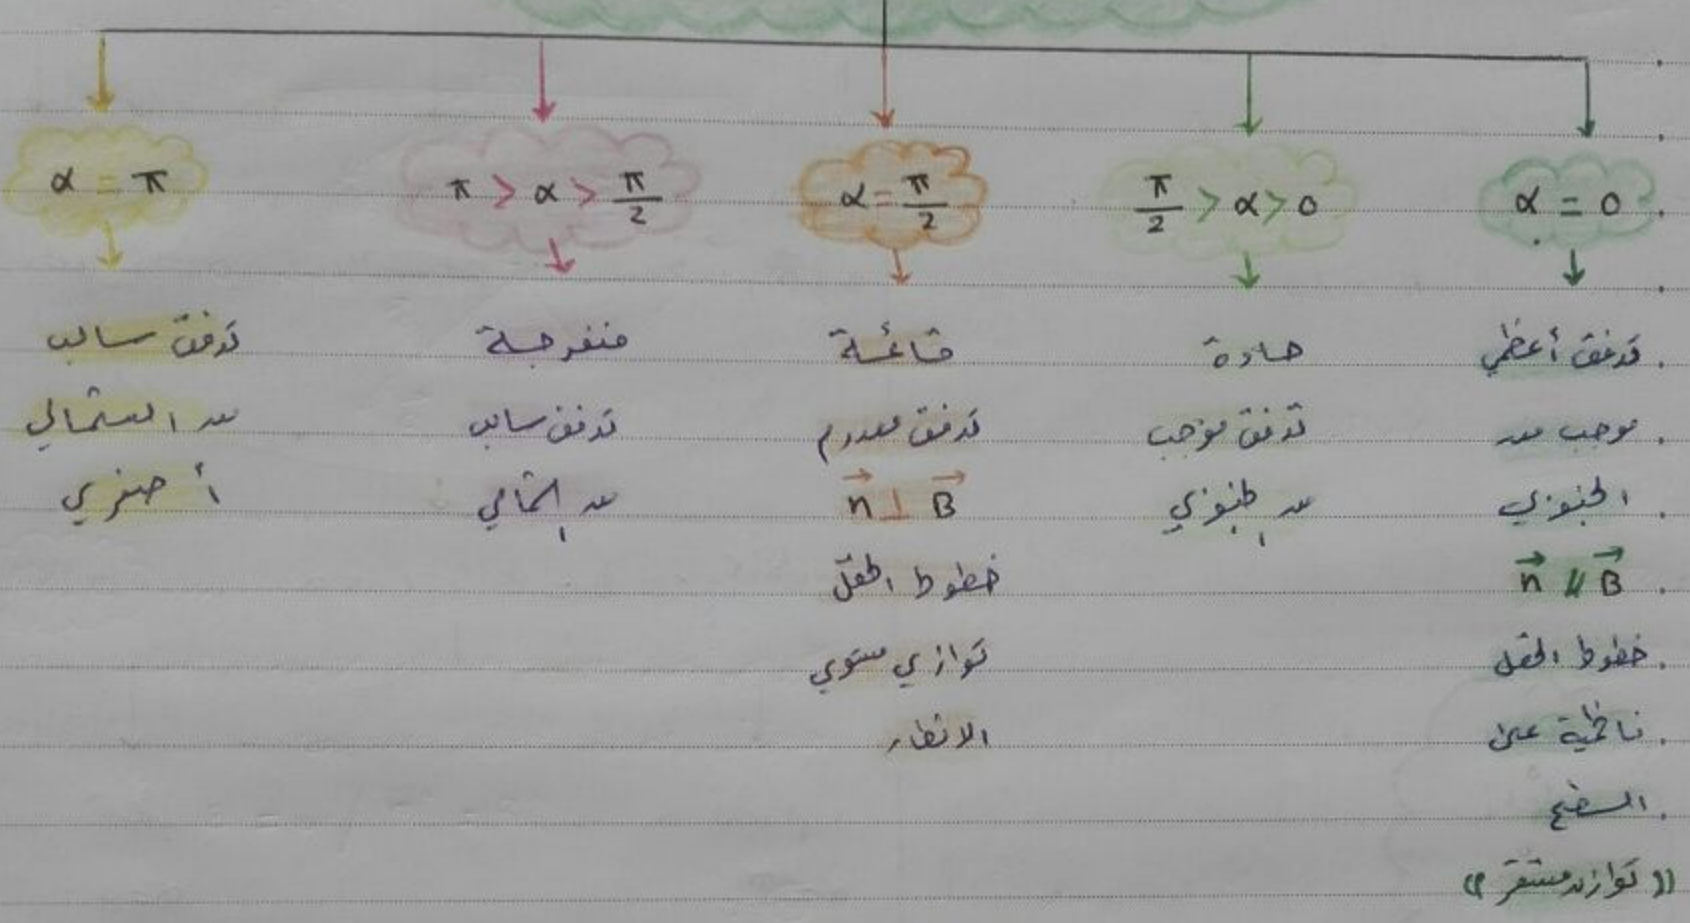 α = 0
تدفق أعظمي
موجب من
الجنوبي
n⃗ // B⃗
خطوط الحقل
ناظمية على
السطح
(( توازن مستقر ))
π/2 > α > 0
حادة
تدفق موجب
من الجنوبي
α = π/2
قائمة
تدفق معدوم
n⃗ ⊥ B⃗
خطوط الحقل
توازي مستوي
π > α > π/2
منفرجة
تدفق سالب
من الشمالي
α = π
تدفق سالب
من الشمالي
أصغري